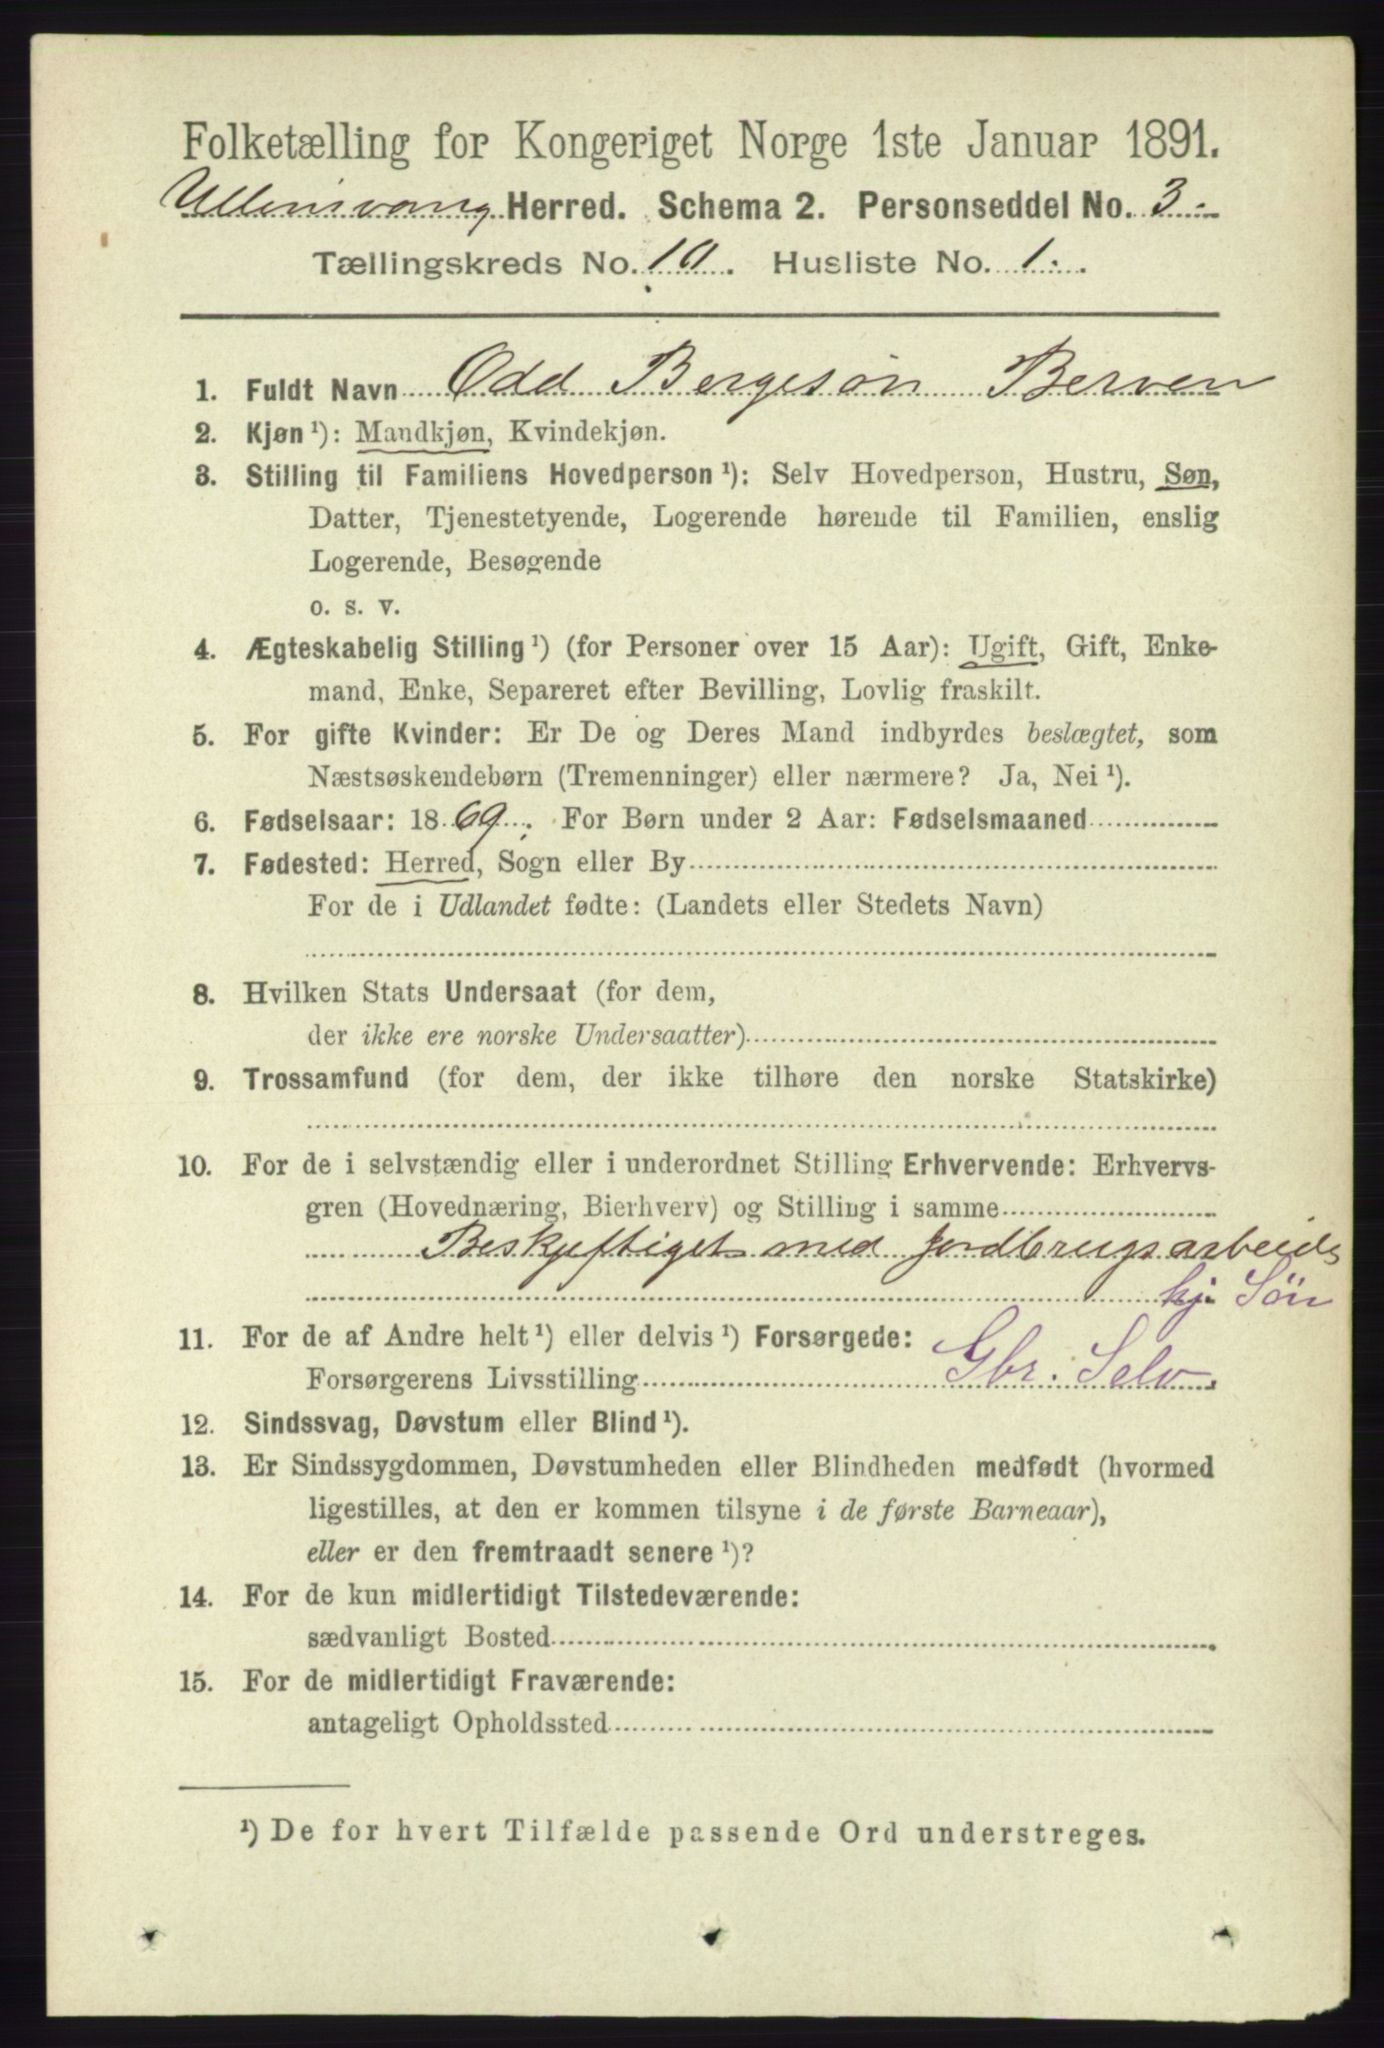 Folketælling for Kongeriget Norge 1ste Januar 1891.
Ullensvang Herred. Schema 2. Personseddel No. 3.
Tællingskreds No. 10. Husliste No. 1.
1. Fuldt Navn Odd Bergesøn Berven
2. Kjøn ¹): Mandkjøn, Kvindekjøn.
3. Stilling til Familiens Hovedperson ¹): Selv Hovedperson, Hustru, Søn,
Datter, Tjenestetyende, Logerende hørende til Familien, enslig
Logerende, Besøgende
o. s. v.
4. Ægteskabelig Stilling ¹) (for Personer over 15 Aar): Ugift, Gift, Enke-
mand, Enke, Separeret efter Bevilling, Lovlig fraskilt.
5. For gifte Kvinder: Er De og Deres Mand indbyrdes beslægtet, som
Næstsøskendebørn (Tremenninger) eller nærmere? Ja, Nei ¹).
6. Fødselsaar: 1869. For Børn under 2 Aar: Fødselsmaaned
7. Fødested: Herred, Sogn eller By
For de i Udlandet fødte: (Landets eller Stedets Navn)
8. Hvilken Stats Undersaat (for dem,
der ikke ere norske Undersaatter)
9. Trossamfund (for dem, der ikke tilhøre den norske Statskirke)
10. For de i selvstændig eller i underordnet Stilling Erhvervende: Erhvervs-
gren (Hovednæring, Bierhverv) og Stilling i samme
Beskjeftiget med Jordbrugsarbeide
hj. Søn
11. For de af Andre helt ¹) eller delvis ¹) Forsørgede:
Forsørgerens Livsstilling Gbr. Selv.
12. Sindssvag, Døvstum eller Blind ¹).
13. Er Sindssygdommen, Døvstumheden eller Blindheden medfødt (hvormed
ligestilles, at den er kommen tilsyne i de første Barneaar),
eller er den fremtraadt senere ¹)?
14. For de kun midlertidigt Tilstedeværende:
sædvanligt Bosted
15. For de midlertidigt Fraværende:
antageligt Opholdssted
¹) De for hvert Tilfælde passende Ord understreges.